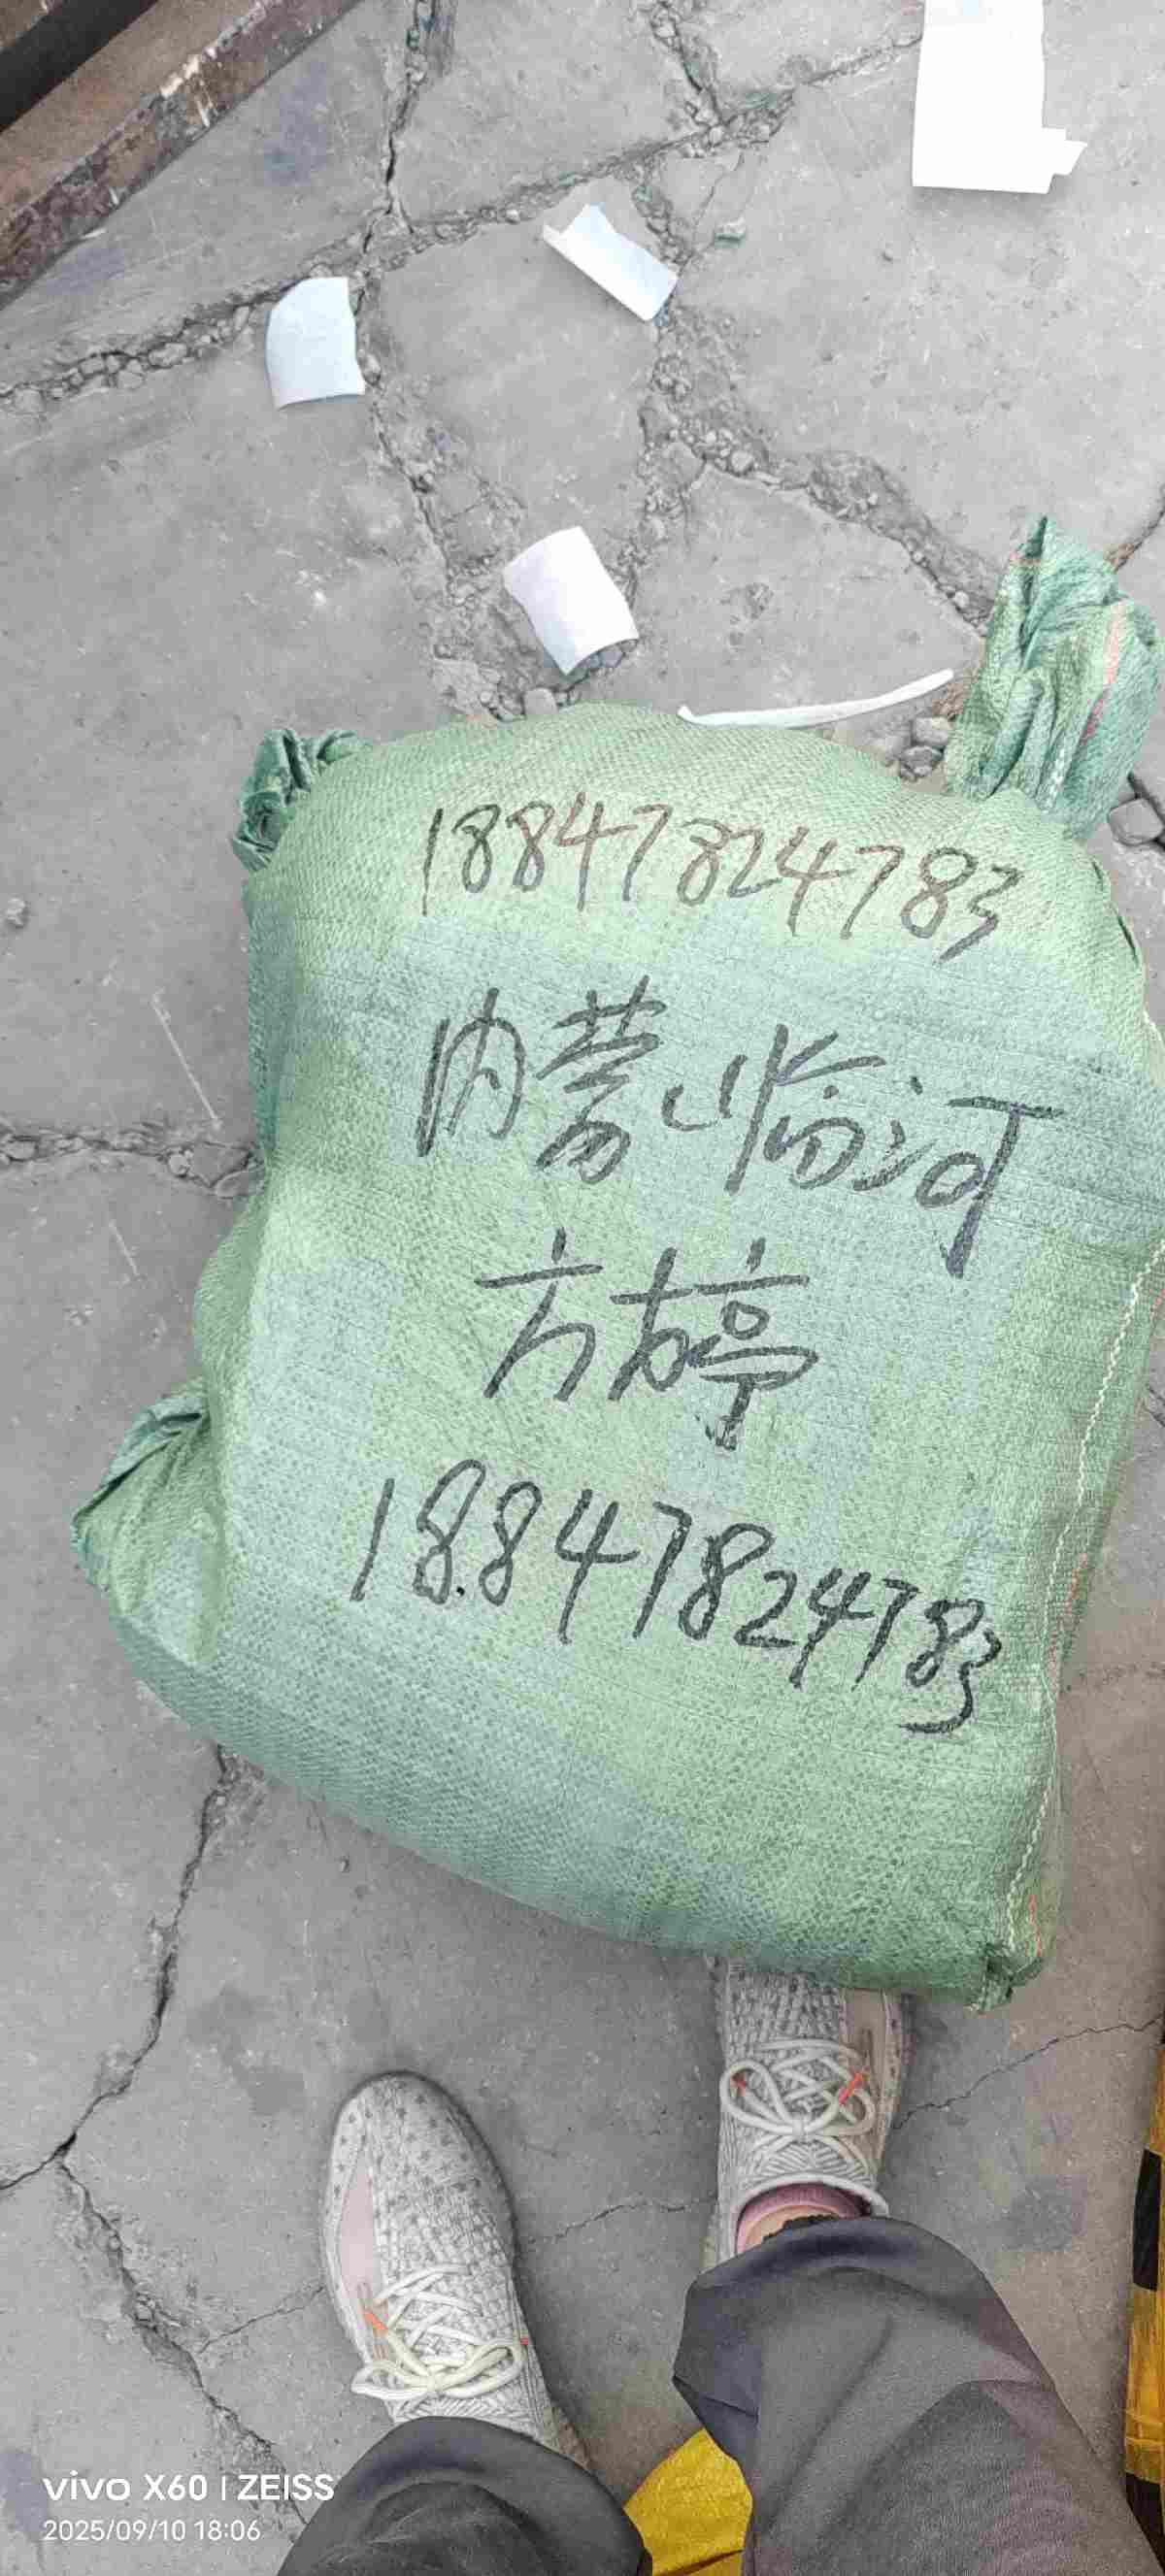 18847824783
内蒙临河
方婷
18847824783
vivo X60 | ZEISS
2025/09/10 18:06